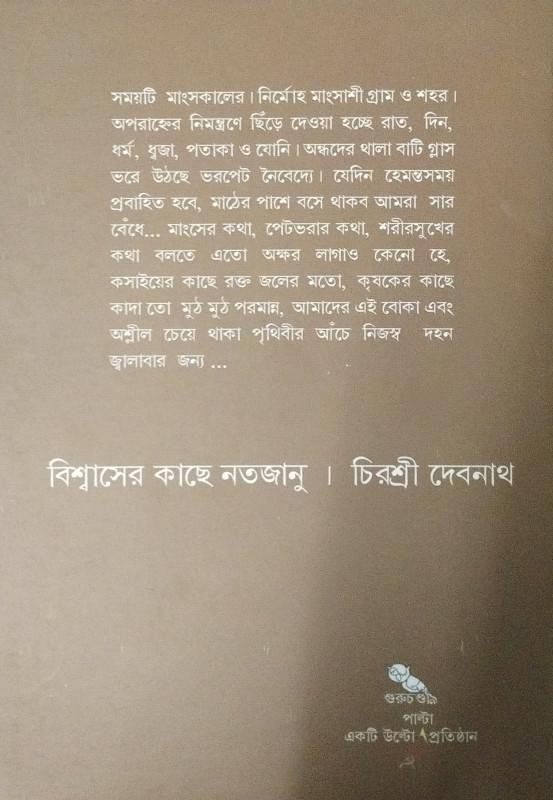 সময়টি মাংসকালের। নির্মোহ মাংসাশী গ্রাম ও শহর।
অপরাহ্নের নিমন্ত্রণে ছিঁড়ে দেওয়া হচ্ছে রাত, দিন,
ধর্ম, ধ্বজা, পতাকা ও যোনি। অন্ধদের থালা বাটি গ্লাস
ভরে উঠছে ভরপেট নৈবেদ্যে। যেদিন হেমন্তসময়
প্রবাহিত হবে, মাঠের পাশে বসে থাকব আমরা সার
বেঁধে... মাংসের কথা, পেটভরার কথা, শরীরসুখের
কথা বলতে এতো অক্ষর লাগাও কেনো হে,
কসাইয়ের কাছে রক্ত জলের মতো, কৃষকের কাছে
কাদা তো মুঠ মুঠ পরমান্ন, আমাদের এই বোকা এবং
অশ্লীল চেয়ে থাকা পৃথিবীর আঁচে নিজস্ব দহন
জ্বালাবার জন্য ...
বিশ্বাসের কাছে নতজানু । চিরশ্রী দেবনাথ
গুরুচণ্ডা৯
পাল্টা
একটি উল্টো প্রতিষ্ঠান